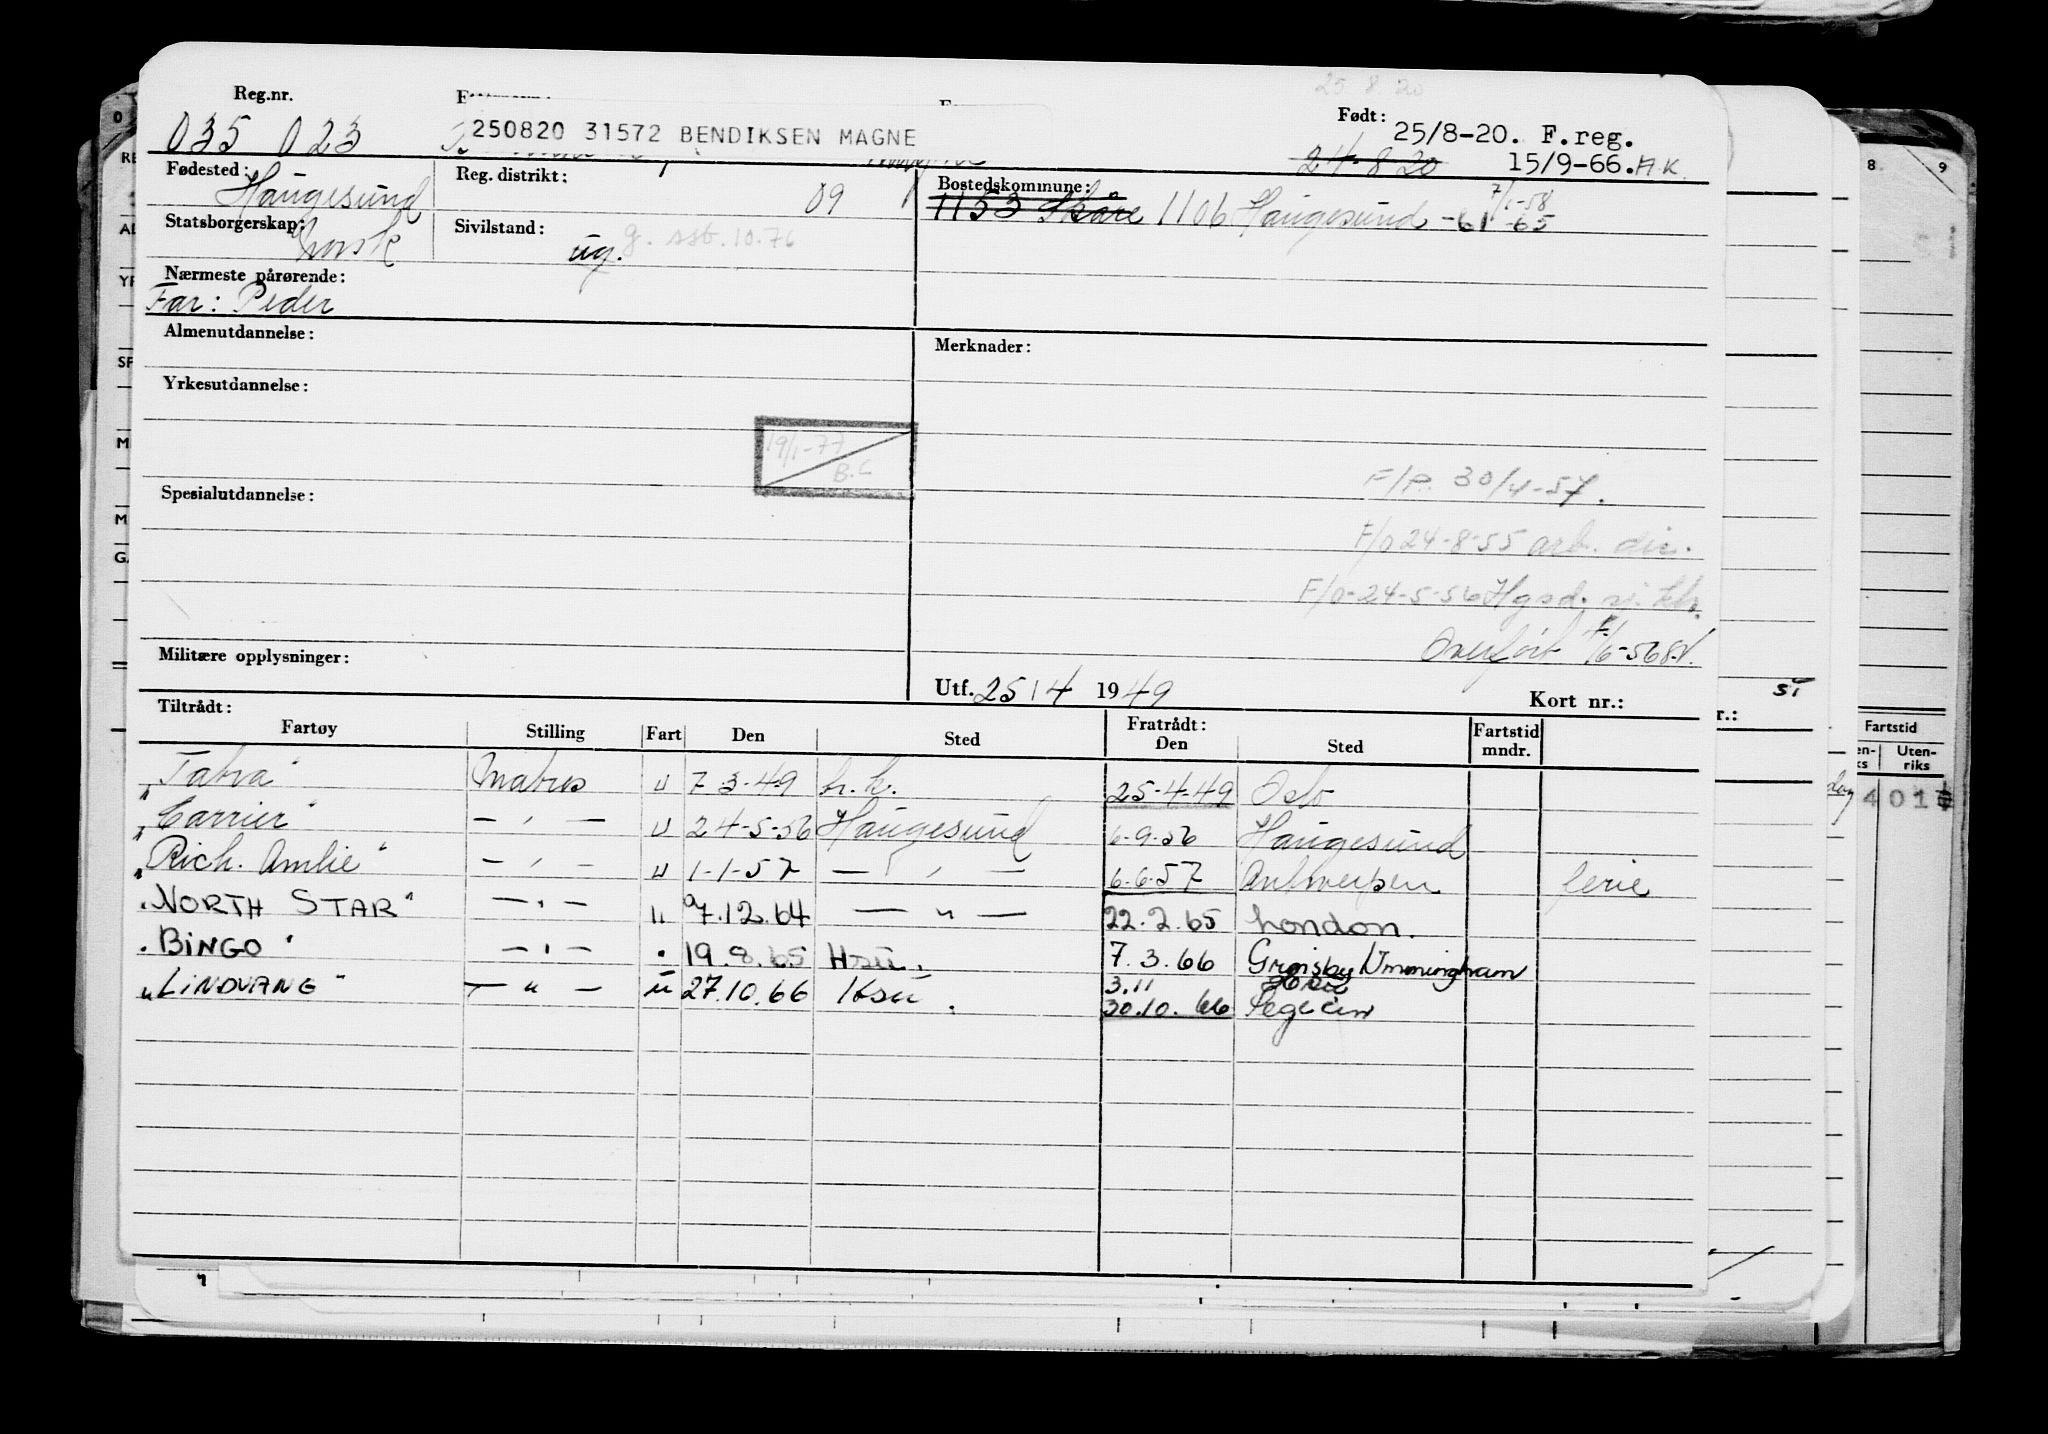 25 8 20
Reg.nr. Født:
035 023 250820 31572 BENDIKSEN MAGNE 25/8-20. F.reg.
24-8 20 15/9-66. A.K.
Fødested: Haugesund Reg. distrikt: 09 Bostedskommune: 1153 Skåre 1106 Haugesund -61 -65 7/1-58
Statsborgerskap: norsk Sivilstand: ug. g. sst. 10.76
Nærmeste pårørende:
Far: Peder
Almenutdannelse: Merknader:
Yrkesutdannelse:
19/1-77
B.C
F/P. 30/4-57.
Spesialutdannelse:
F/o 24-8-55 arb. dir.
F/o-24-5-56 Hgsd.
Overført 4/6-56
Militære opplysninger:
Utf. 25/4 1949 Kort nr.:
Tiltrådt: Fratrådt:
Fartøy Stilling Fart Den Sted Den Sted Fartstid mndr.
"Tabra" Matros u 7 3-49 h.k. 25-4-49 Oslo
"Carrier" — " — u 24-5-56 Haugesund 6-9-56 Haugesund
"Rich. Amlie" — " — u 1-1-57 — " — 6-6-57 Antwerpen ferie
"NORTH STAR" — " — u 7.12.64 — " — 22.2.65 London.
"BINGO" — " — " 19.8.65 Hsu. 7.3.66 Grmsby Ummingham
"LINDVANG" — " — u 27.10.66 Hsu. 3.11
30.10.66
Fartstid
Uten-
riks
401